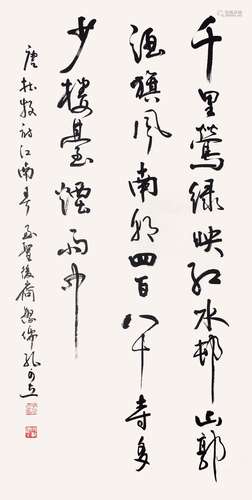 千里鶯綠映紅水邨山郭
酒旗風南朝四百八十寺多
少樓臺煙雨中
唐杜牧詩江南春 至聖後裔 孔可立